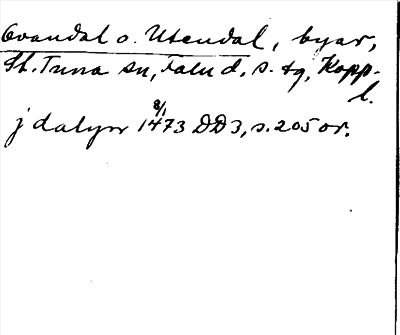 Ovandal o. Utendal, byar,
St. Tuna sn, Falu d. s. tg, Kopp.
l.
j dalym 8/1 1473 DD3, s. 205 or.